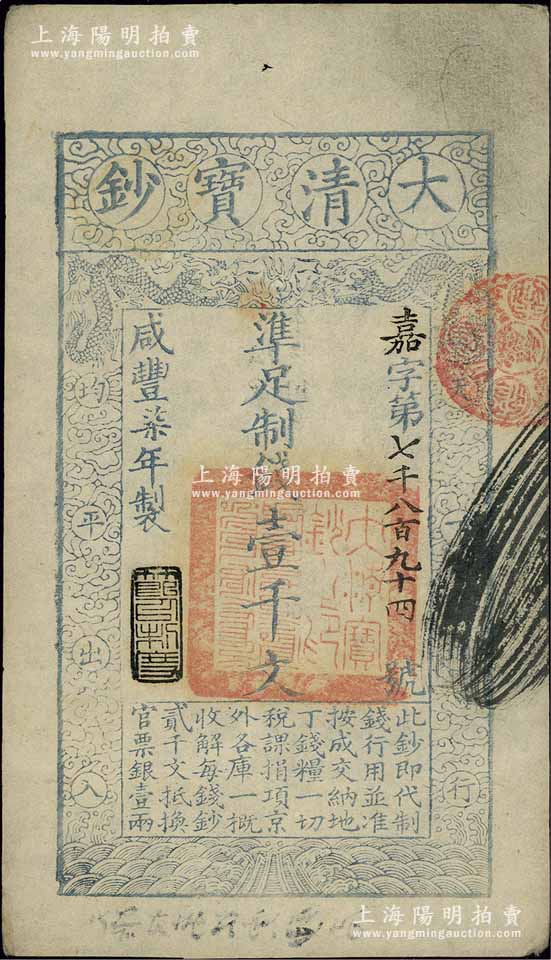 上海陽明拍賣
www.yangmingauction.com
上海陽明拍賣
www.yangmingauction.com
大清寶鈔
嘉字第七千八百九十四號
準足制錢壹千文
咸豐柒年製
上海陽明拍賣
www.yangmingauction.com
大清寶鈔之印
行
均平出入
此鈔即代制
錢行用並准
按成交納地
丁錢糧一切
稅課捐項京
外各庫一概
收解每錢鈔
貳千文抵換
官票銀壹兩
上海陽明拍賣
www.yangmingauction.com